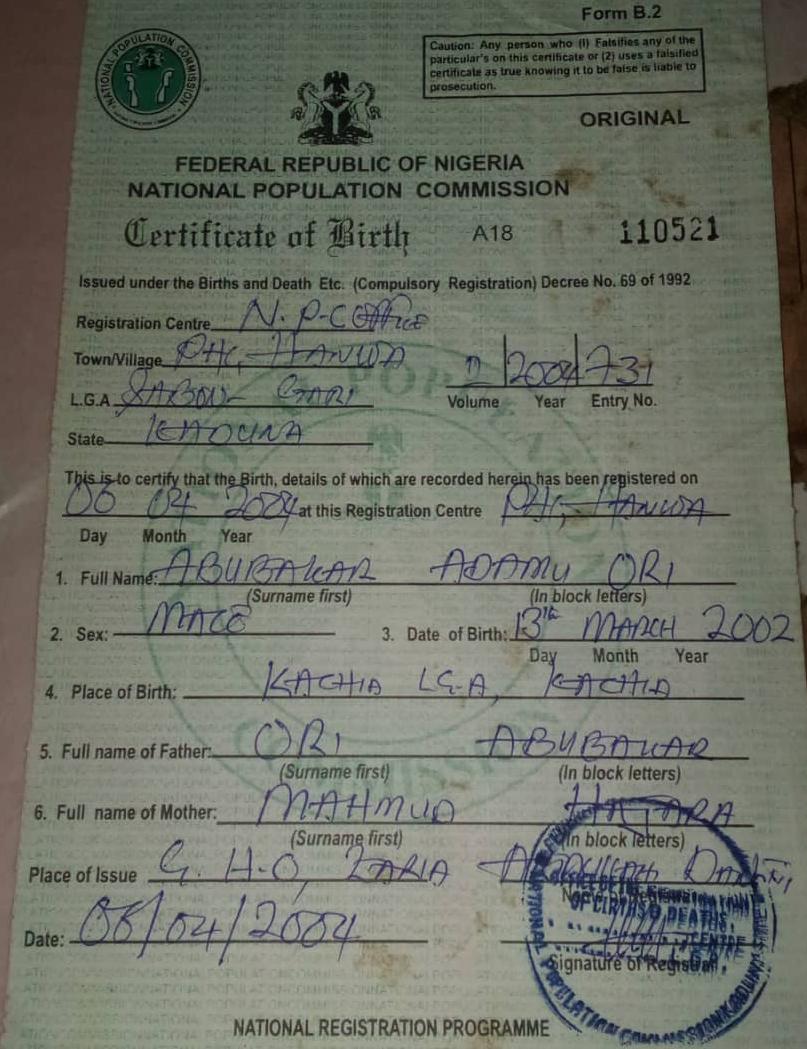 Form B.2
NATIONAL POPULATION COMMISSION
Caution: Any person who (I) Falsifies any of the
particular's on this certificate or (2) uses a falsified
certificate as true knowing it to be false is liable to
prosecution.
ORIGINAL
FEDERAL REPUBLIC OF NIGERIA
NATIONAL POPULATION COMMISSION
Certificate of Birth A18 110521
Issued under the Births and Death Etc. (Compulsory Registration) Decree No. 69 of 1992
Registration Centre N.P.C Office
Town/Village PHC, HANWA
2004 731
Volume Year Entry No.
L.G.A SABON GARI
State KADUNA
This is to certify that the Birth, details of which are recorded herein has been registered on
06 04 2004 at this Registration Centre PHC, HANWA
Day Month Year
1. Full Name: ABUBAKAR ADAMU ORI
(Surname first) (In block letters)
2. Sex: MALE 3. Date of Birth: 13th MARCH 2002
Day Month Year
4. Place of Birth: KACHIA LGA, KACHIA
5. Full name of Father: ORI ABUBAKAR
(Surname first) (In block letters)
6. Full name of Mother: MAHMUD
(Surname first) (In block letters)
Place of Issue G.H.O, ZARIA
Date: 06/04/2004
Signature of Registrar
NATIONAL REGISTRATION PROGRAMME